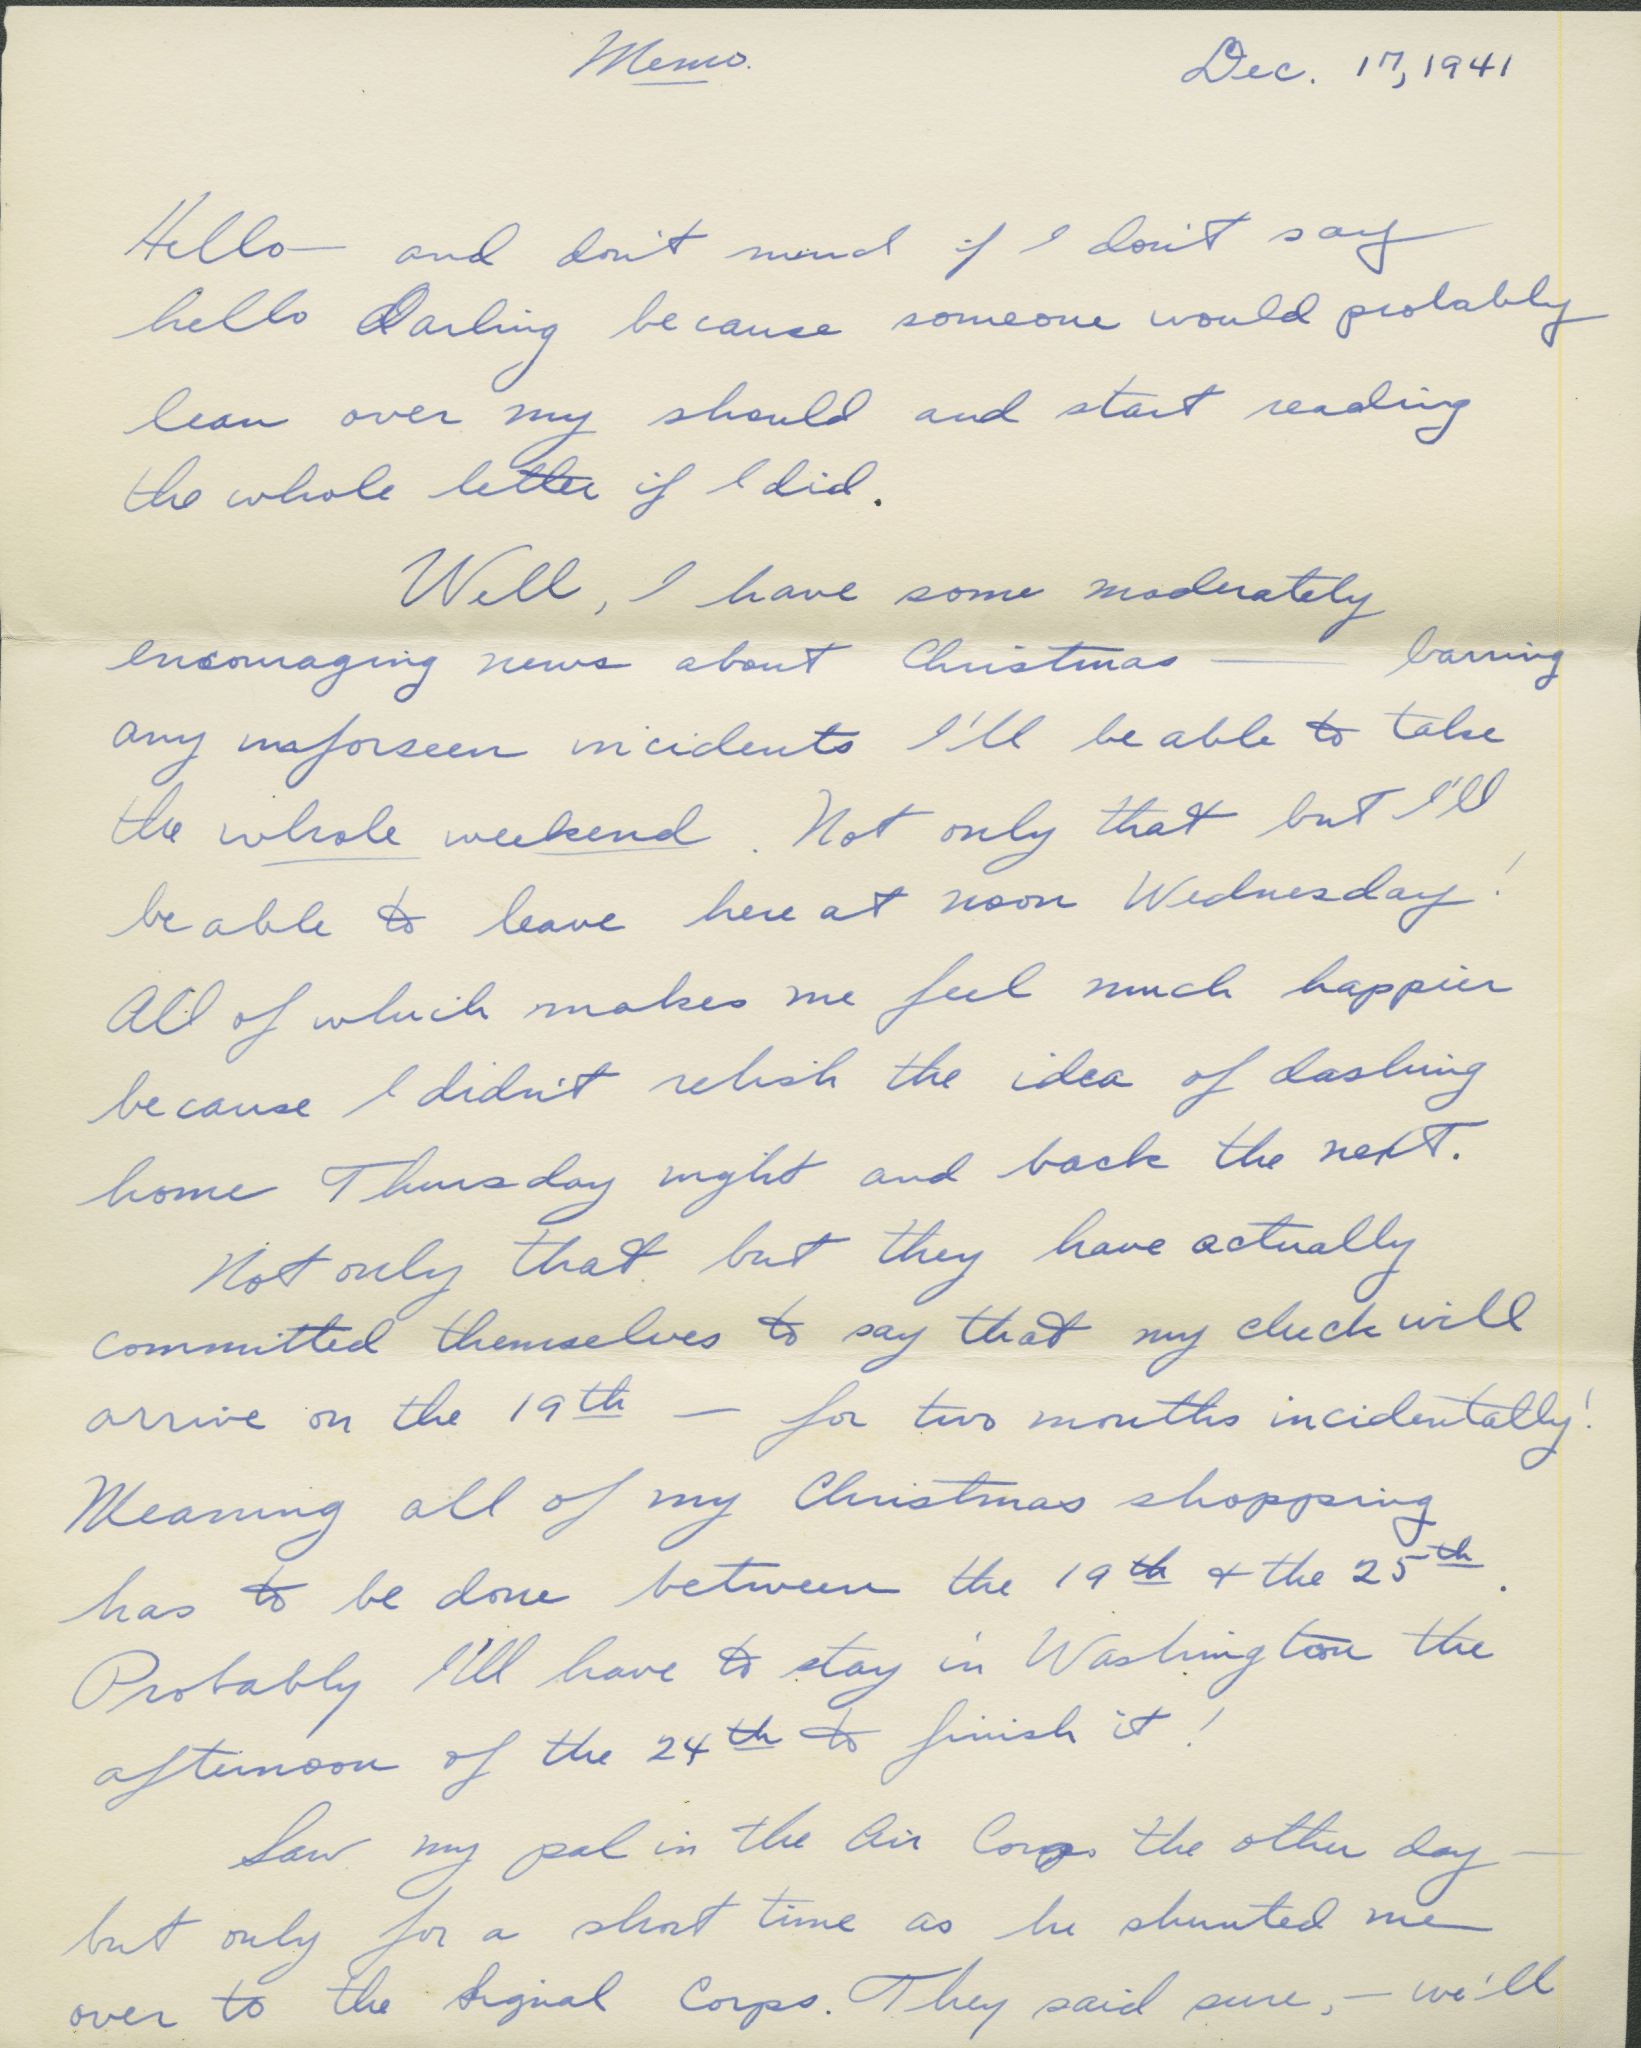 Memo.
Dec. 17, 1941
Hello — and don't mind if I don't say
hello Darling because someone would probably
lean over my should and start reading
the whole letter if I did.
Well, I have some moderately
encouraging news about Christmas — barring
any unforseen incidents I'll be able to take
the whole weekend. Not only that but I'll
be able to leave here at noon Wednesday!
All of which makes me feel much happier
because I didn't relish the idea of dashing
home Thursday night and back the next.
Not only that but they have actually
committed themselves to say that my check will
arrive on the 19th — for two months incidentally!
Meaning all of my Christmas shopping
has to be done between the 19th & the 25th.
Probably I'll have to stay in Washington the
afternoon of the 24th to finish it!
Saw my pal in the Air Corps the other day —
but only for a short time as he shunted me
over to the Signal Corps. They said sure, — we'll